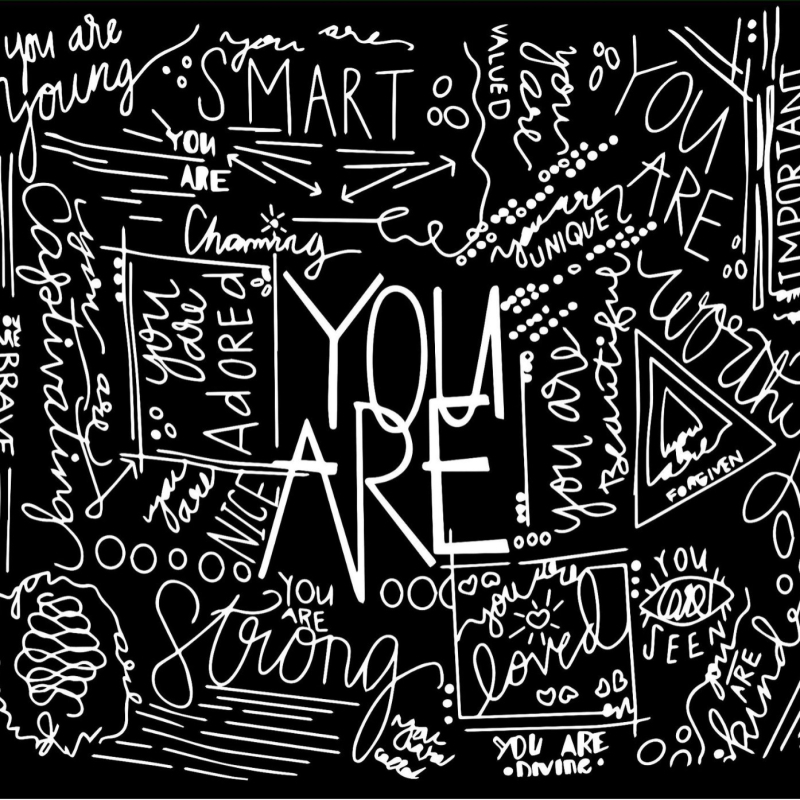 you are
young
you are
SMART
VALUED
you
are
YOU
ARE
IMPORTANT
YOU
ARE
Charming
you are
UNIQUE
worthy
captivating
you are
you
are
ADORED
YOU
ARE
you are
Beautiful
you
are
FORGIVEN
BRAVE
you
are
NICE
YOU
ARE
Strong
you are
loved
YOU
are
SEEN
you
ARE
kind
you
and
called
YOU ARE
DIVINE
you
are